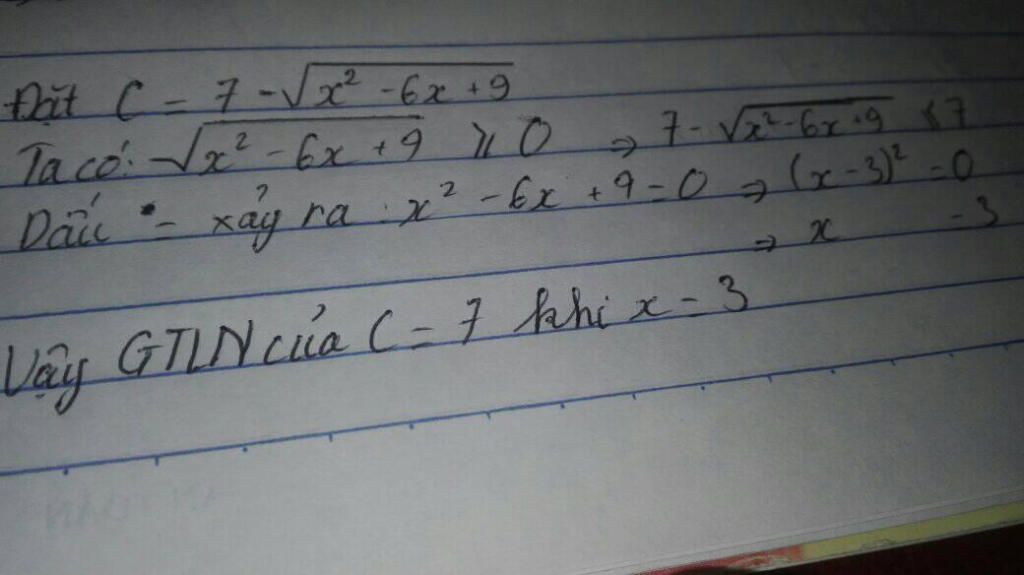 Đặt C = 7 - √(x² - 6x + 9)
Ta có: √(x² - 6x + 9) ≥ 0 ⇒ 7 - √(x² - 6x + 9) ≤ 7
Dấu = xảy ra : x² - 6x + 9 = 0 ⇒ (x - 3)² = 0
⇒ x = 3
Vậy GTLN của C = 7 khi x = 3